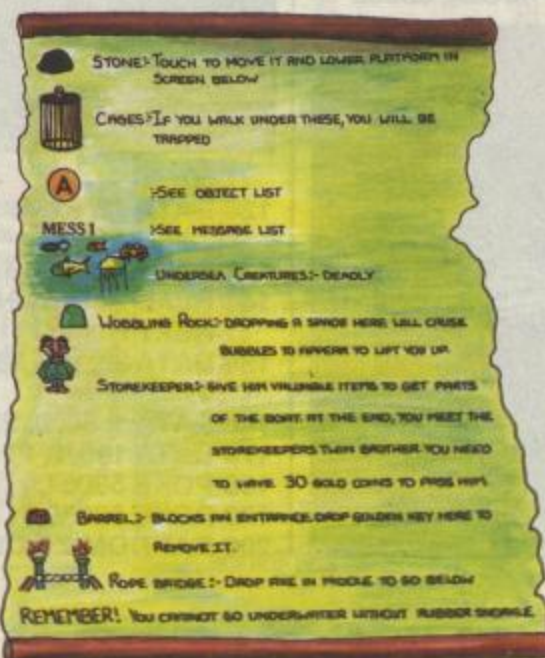 STONE:- TOUCH TO MOVE IT AND LOWER PLATFORM IN
SCREEN BELOW
CAGES:- IF YOU WALK UNDER THESE, YOU WILL BE
TRAPPED
A
:-SEE OBJECT LIST
MESS 1
:-SEE MESSAGE LIST
UNDERSEA CREATURES:- DEADLY
WOBBLING ROCK:- DROPPING A SPADE HERE WILL CAUSE
BUBBLES TO APPEAR TO LIFT YOU UP.
STOREKEEPER:- GIVE HIM VALUABLE ITEMS TO GET PARTS
OF THE BOAT. AT THE END, YOU MEET THE
STOREKEEPERS TWIN BROTHER. YOU NEED
TO HAVE 30 GOLD COINS TO PASS HIM.
BARREL:- BLOCKS AN ENTRANCE. DROP GOLDEN KEY HERE TO
REMOVE IT.
ROPE BRIDGE:- DROP AXE IN MIDDLE TO GO BELOW
REMEMBER! YOU CANNOT GO UNDERWATER WITHOUT RUBBER SNORKLE